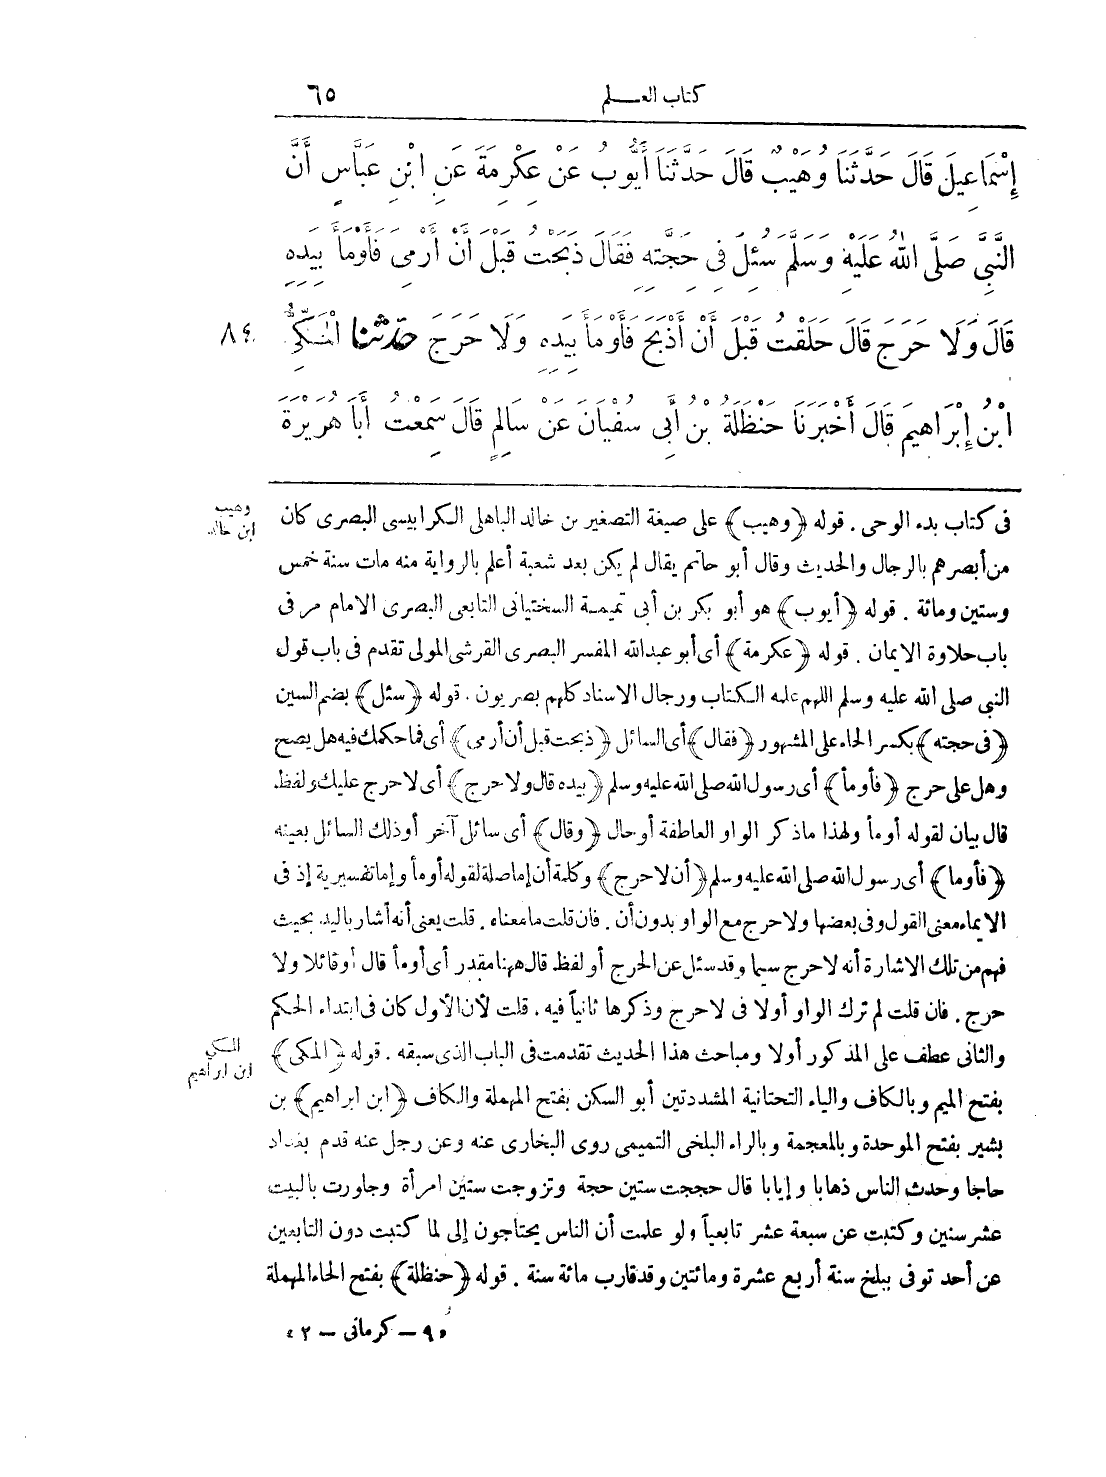 كتاب العلم
٦٥
إِسْمَاعِيلَ قَالَ حَدَّثَنَا وُهَيْبٌ قَالَ حَدَّثَنَا أَيُّوبُ عَنْ عِكْرِمَةَ عَنِ ابْنِ عَبَّاسٍ أَنَّ
النَّبِيَّ صَلَّى اللهُ عَلَيْهِ وَسَلَّمَ سُئِلَ فِى حَجَّتِهِ فَقَالَ ذَبَحْتُ قَبْلَ أَنْ أَرْمِىَ فَأَوْمَأَ بِيَدِهِ
قَالَ وَلَا حَرَجَ قَالَ حَلَقْتُ قَبْلَ أَنْ أَذْبَحَ فَأَوْمَأَ بِيَدِهِ وَلَا حَرَجَ حَدَّثنا الْمَكِّىُّ
٨٤
ابْنُ إِبْرَاهِيمَ قَالَ أَخْبَرَنَا حَنْظَلَةُ بْنُ أَبِى سُفْيَانَ عَنْ سَالِمٍ قَالَ سَمِعْتُ أَبَا هُرَيْرَةَ
وهيب
ابن خالد
فى كتاب بدء الوحى . قوله ﴿وهيب﴾ على صيغة التصغير بن خالد الباهلى الكرابيسى البصرى كان
من أبصرهم بالرجال والحديث وقال أبو حاتم يقال لم يكن بعد شعبة أعلم بالرواية منه مات سنة خمس
وستين ومائة . قوله ﴿أيوب﴾ هو أبو بكر بن أبى تميمة السختيانى التابعى البصرى الامام مر فى
باب حلاوة الايمان . قوله ﴿عكرمة﴾ أى أبو عبدالله المفسر البصرى القرشى المولى تقدم فى باب قول
النبى صلى الله عليه وسلم اللهم علمه الكتاب ورجال الاسناد كلهم بصريون . قوله ﴿سئل﴾ بضم السين
﴿فى حجته﴾ بكسر الحاء على المشهور ﴿فقال﴾ أى السائل ﴿ذبحت قبل أن أرمى﴾ أى فما حكمك فيه هل يصح
وهل على حرج ﴿فأومأ﴾ أى رسول الله صلى الله عليه وسلم ﴿بيده قال ولا حرج﴾ أى لا حرج عليك ولفظ
قال بيان لقوله أومأ ولهذا ماذكر الواو العاطفة أو حال ﴿وقال﴾ أى سائل آخر أو ذلك السائل بعينه
﴿فأوما﴾ أى رسول الله صلى الله عليه وسلم ﴿أن لا حرج﴾ وكلمة أن إما صلة لقوله أومأ وإما تفسيرية إذ فى
الايماء معنى القول وفى بعضها ولا حرج مع الواو بدون أن . فان قلت ما معناه . قلت يعنى أنه أشار باليد بحيث
فهم من تلك الاشارة أنه لا حرج سيما وقد سئل عن الحرج أو لفظ قال ههنا مقدر أى أومأ قال أو قائلا ولا
حرج . فان قلت لم ترك الواو أولا فى لا حرج وذكرها ثانياً فيه . قلت لأن الأول كان فى ابتداء الحكم
والثانى عطف على المذكور أولا ومباحث هذا الحديث تقدمت فى الباب الذى سبقه . قوله ﴿المكى﴾
المكى
ابن ابراهيم
بفتح الميم وبالكاف والياء التحتانية المشددتين أبو السكن بفتح المهملة والكاف ﴿ابن ابراهيم﴾ بن
بشير بفتح الموحدة وبالمعجمة وبالراء البلخى التميمى روى البخارى عنه وعن رجل عنه قدم بغداد
حاجا وحدث الناس ذهابا وإيابا قال حججت ستين حجة وتزوجت ستين امرأة وجاورت بالبيت
عشر سنين وكتبت عن سبعة عشر تابعياً ولو علمت أن الناس يحتاجون إلى لما كتبت دون التابعين
عن أحد توفى ببلخ سنة أربع عشرة ومائتين وقد قارب مائة سنة . قوله ﴿حنظلة﴾ بفتح الحاء المهملة
«٩ – كرمانى – ٢»